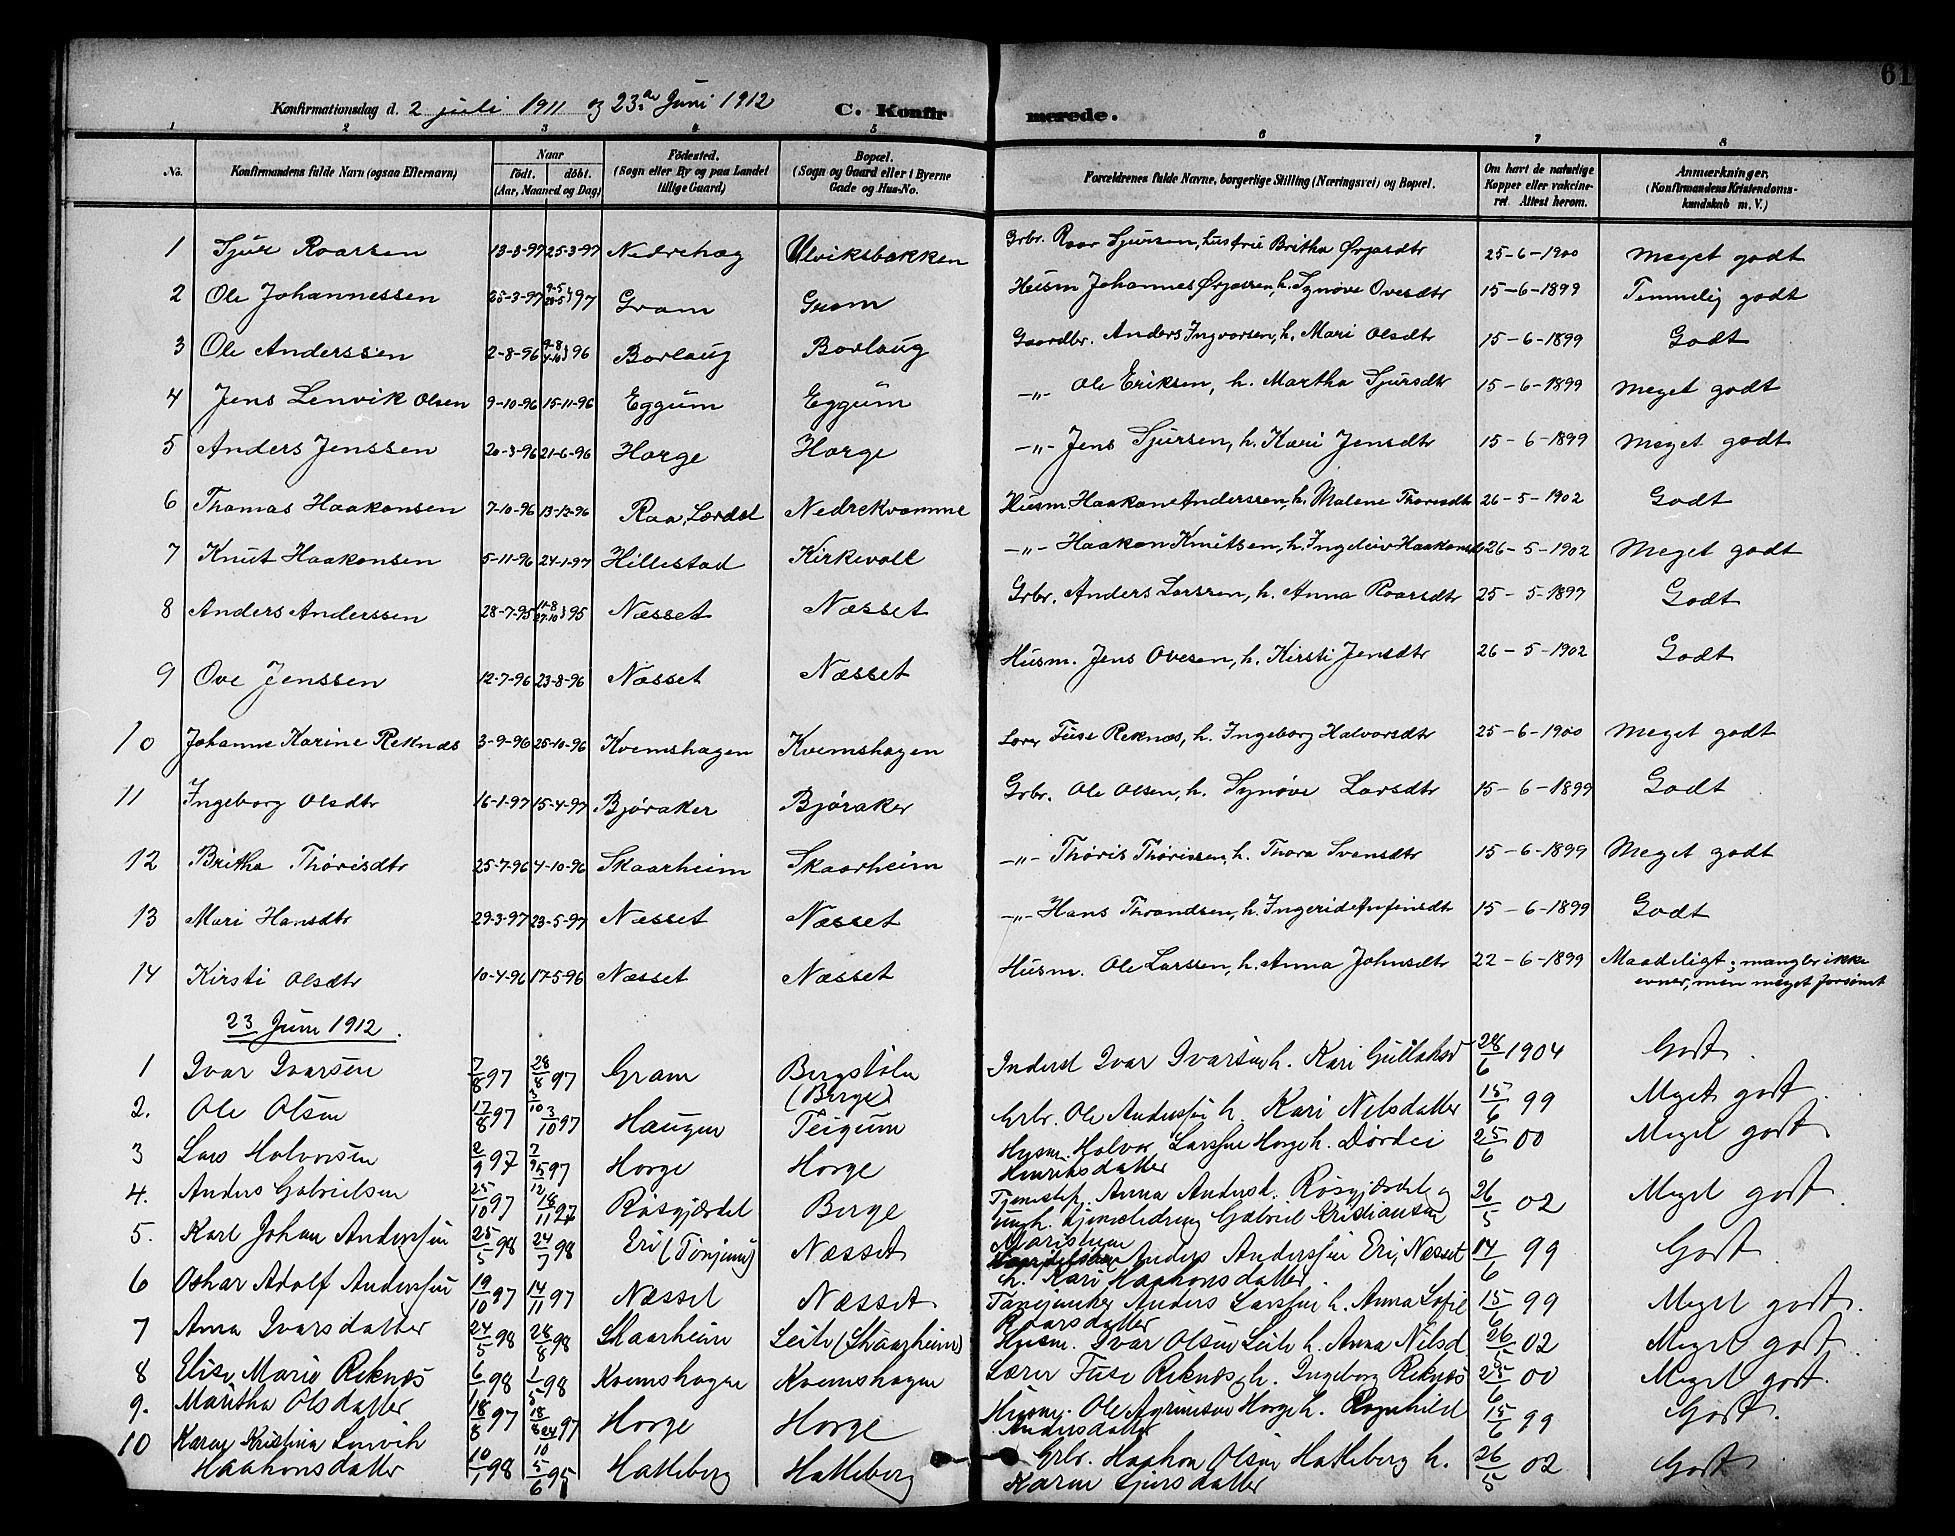 61
Konfirmationsdag d. 2 juli 1911 og 23de Juni 1912 C. Konfirmerede.
1 2 3 4 5 6 7 8
No. Konfirmandens fulde Navn (ogsaa Efternavn) Naar født. døbt. (Aar, Maaned og Dag) Fødested. (Sogn eller By og paa Landet tillige Gaard) Bopæl. (Sogn og Gaard eller i Byerne Gade og Hus-No.) Forældrenes fulde Navne, borgerlige Stilling (Næringsvei) og Bopæl. Om havt de naturlige Kopper eller vakcineret. Attest herom. Anmærkninger. (Konfirmandens Kristendomskundskab m. V.)
1 Sjur Roarsen 13-3-97 25-3-97 Nedrehæg Ulviksbakken Grbr. Roar Sjursen, husfrue Britha Ørjasdtr 25-6-1900 Meget godt
2 Ole Johannessen 25-3-97 9-5 97 Gram Gram Husm Johannes Ørjassen, h. Synøve Ovesdtr 15-6-1899 Temmelig godt
3 Ole Anderssen 2-8-96 9-8 4-10 } 96 Borlaug Borlaug Gaardbr. Anders Ingvarsen, h. Mari Olsdtr 15-6-1899 Godt
4 Jens Lenvik Olsen 9-10-96 15-11-96 Eggum Eggum -"- Ole Eriksen, h. Martha Sjursdtr 15-6-1899 Meget godt
5 Anders Jenssen 20-3-96 21-6-96 Horge Horge -"- Jens Sjursen, h. Kari Jensdtr 15-6-1899 Meget godt
6 Thomas Haakonsen 7-10-96 13-12-96 Raa, Lærdal Nedrekvamme Husm. Haakon Anderssen, h. Malene Thomasdtr 26-5-1902 Godt
7 Knut Haakonsen 5-11-96 24-1-97 Hillestad Kirkevoll -"- Haakon Knutsen, h. Ingeleiv Haakonsd 26-5-1902 Meget godt
8 Anders Anderssen 28-7-95 11-8 27-10 } 95 Næsset Næsset Grbr. Anders Larssen, h. Anna Roarsdtr 25-5-1897 Godt
9 Ove Jenssen 12-7-96 23-8-96 Næsset Næsset Husm. Jens Ovesen, h. Kirsti Jensdtr 26-5-1902 Godt
10 Johanne Karine Reknæs 3-9-96 25-10-96 Kvemshagen Kvemshagen Lærer Fuse Reknæs, h. Ingeborg Halvorsdtr 25-6-1900 Meget godt
11 Ingeborg Olsdtr 16-1-97 15-4-97 Bjøraker Bjøraker Grbr. Ole Olsen, h. Synøve Larsdtr 15-6-1899 Godt
12 Britha Thørisdtr 25-7-96 4-10-96 Skaarheim Skaarheim -"- Thøris Thørissen, h. Thora Svensdtr 15-6-1899 Meget godt
13 Mari Hansdtr 29-3-97 23-5-97 Næsset Næsset -"- Hans Throndsen, h. Ingerid Anfinsdtr 15-6-1899 Godt
14 Kirsti Olsdtr 10-4-96 17-5-96 Næsset Næsset Husm. Ole Larssen, h. Anna Johnsdtr 22-6-1899 Maadeligt; mangler ikke
evner, men meget forsømt
23 Juni 1912.
1 Ivar Ivarsen 7/8 97 28/8 97 Gram Bergstølen (Berge) Inderst Ivar Ivarsen h. Kari Gullaksd 28/6 1904 Godt.
2. Ole Olsen 17/8 97 3/10 97 Haugen Teigum Grbr. Ole Anderssen h. Kari Nilsdatter 15/6 99 Meget godt.
3 Lars Halvorsen 2/9 97 97 Horge Horge Husm. Halvor Larssen Horge h. Dørdei 25/6 00 Meget godt
Henriksdatter
4. Anders Gabrielsen 25/10 97 18/11 97 Røsgjærdet Berge Tjenestep. Anna Andersd. Røsgjærdet og 26/5 02 Meget godt.
Ungk. Gabriel Kristiansen
5. Karl Johan Anderssen 25/5 98 24/7 98 Eri (Tønjum) Næsset Anders Anderssen Eri, Næsset 14/6 99 Godt.
h. Kari Haakonsdatter.
6 Oskar Adolf Anderssen 19/10 97 14/11 97 Næsset Næsset Anders Larssen h. Anna Sofie 15/6 99 Meget godt.
Roarsdatter
7 Anna Ivarsdatter 24/5 98 28/8 98 Skaarheim Leite (Skaarheim) Husm. Ivar Olsen Leite h. Anna Nilsd 26/5 02 Meget godt.
8 Elise Marie Reknæs 6/ 98 1/5 98 Kvemshagen Kvemshagen Lærer Fuse Reknæs, h. Ingeborg Reknæs 25/6 00 Meget godt.
9. Maritha Olsdatter 18/8 97 97 Horge Horge Husm. Ole Horge h. Ragnhild 15/6 99 Godt.
Andersdatter
10 Karen Kristina Lenvik 10/1 98 5/6 95 Hatleberg Hatleberg Grbr. Haakon Olsen Hatleberg h. 26/5 02 Godt
Haakonsdatter Karen Sjursdatter